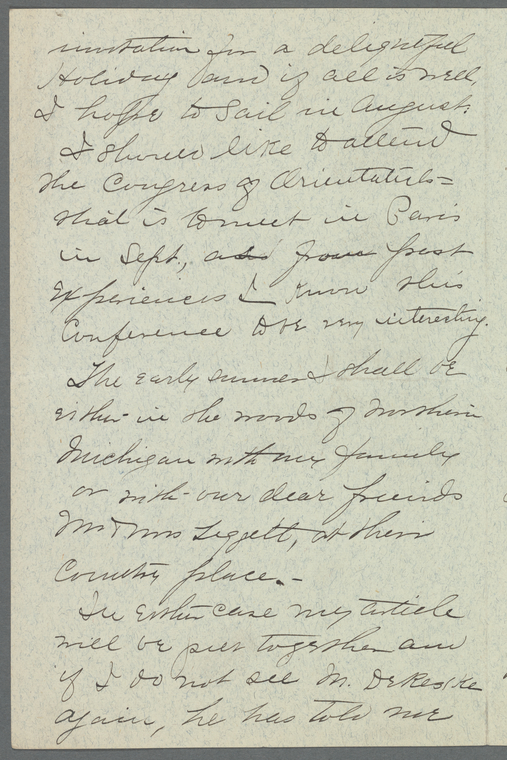 invitation for a delightful
Holiday and if all is well
I hope to Sail in August.
I should like to attend
the Congress of Orientatuls=
that is to meet in Paris
in Sept, as from past
experiences I know this
Conference to be very interesting.
The early summer I shall be
either in the woods of Northern
Michigan with my family
or with our dear friends
Mr & Mrs Leggett, at their
Country place.-
In either case my article
will be put together and
if I do not see M. DeKeske
again, he has told me